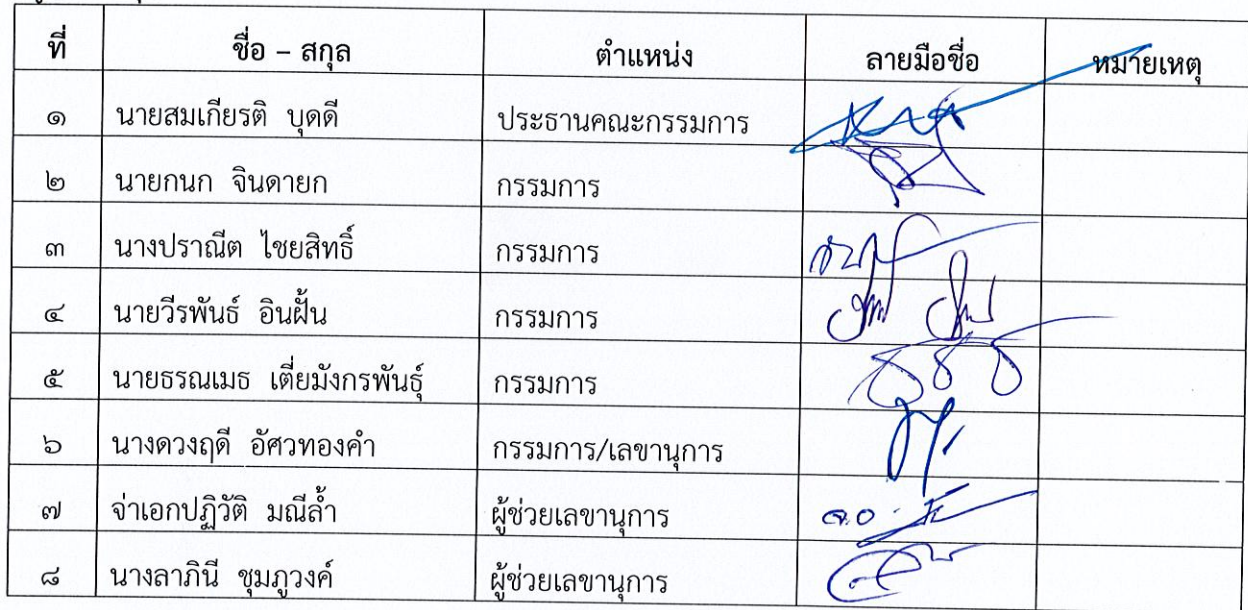 ที่ ชื่อ – สกุล ตำแหน่ง ลายมือชื่อ หมายเหตุ
๑ นายสมเกียรติ บุดดี ประธานคณะกรรมการ
๒ นายกนก จินดายก กรรมการ
๓ นางปราณีต ไชยสิทธิ์ กรรมการ
๔ นายวีรพันธ์ อินฝั้น กรรมการ
๕ นายธรณเมธ เตี่ยมังกรพันธุ์ กรรมการ
๖ นางดวงฤดี อัศวทองคำ กรรมการ/เลขานุการ
๗ จ่าเอกปฏิวัติ มณีล้ำ ผู้ช่วยเลขานุการ จ.อ.
๘ นางลาภินี ชุมภูวงค์ ผู้ช่วยเลขานุการ